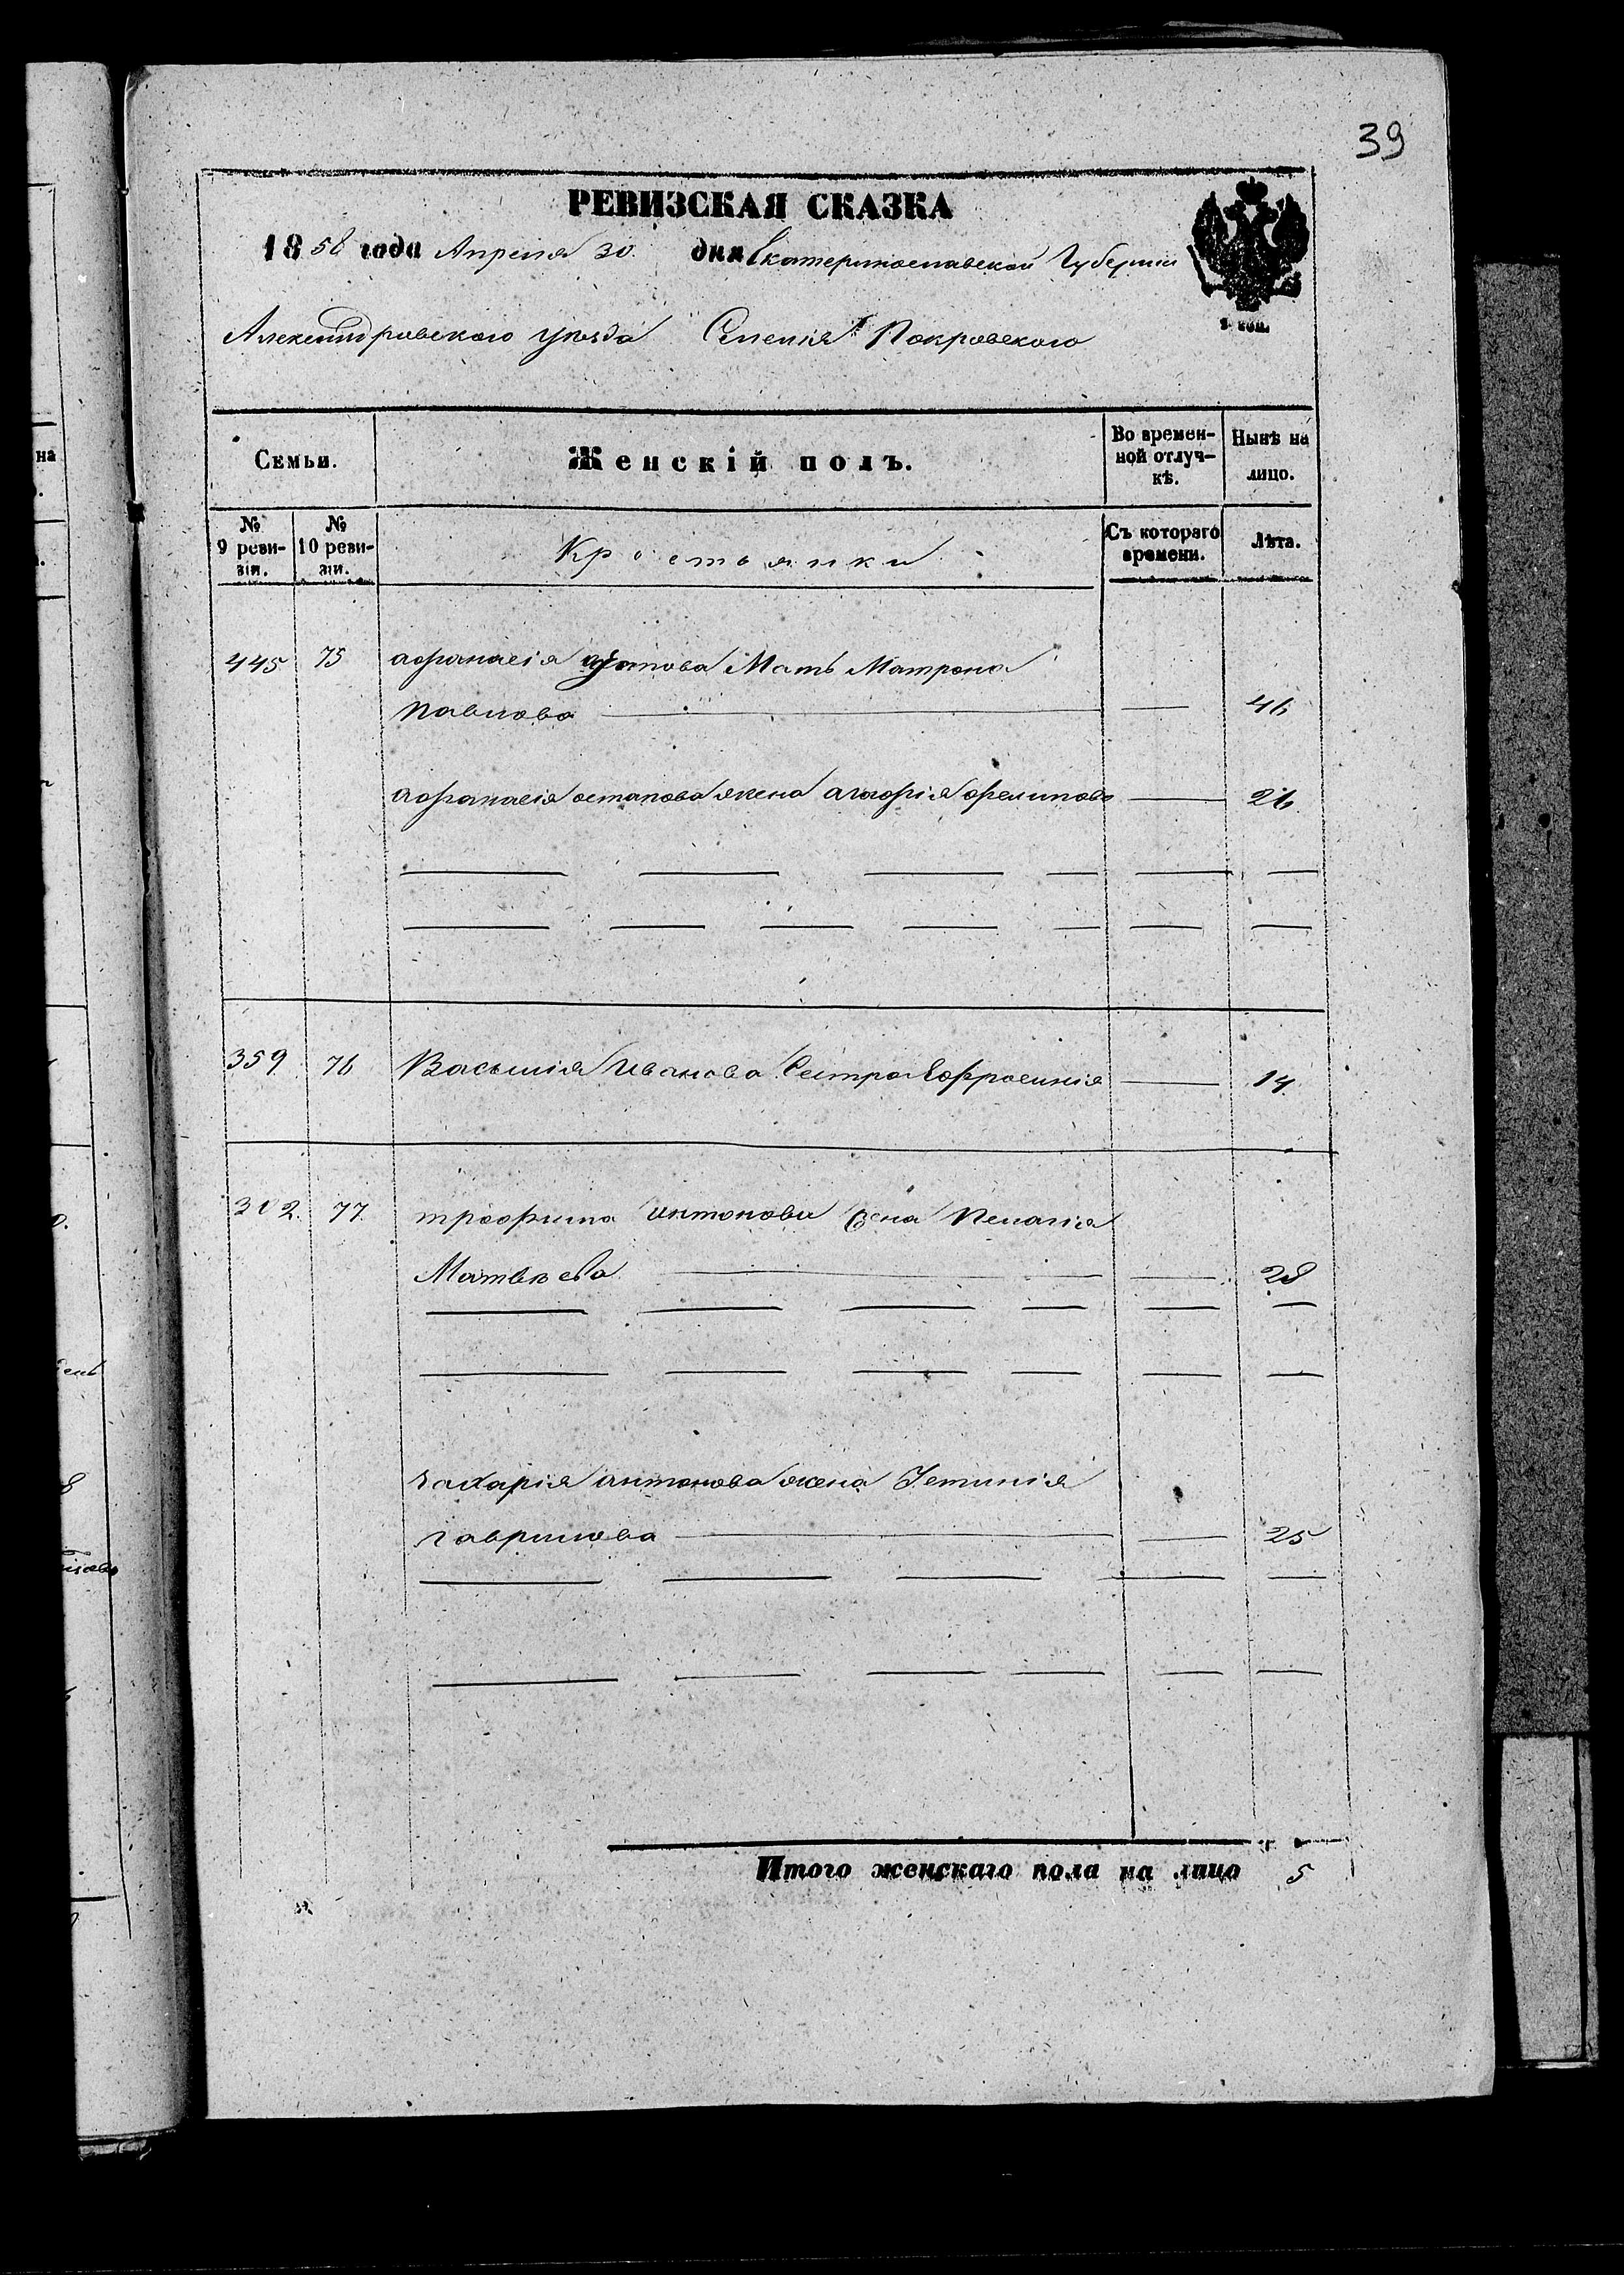 39
РЕВИЗСКАЯ СКАЗКА
1858 года Апреля 30. дня Екатеринославской Губернии
Александровского уѣзда Селенія Покровского
3 коп.
Семьи.
Женскій полъ.
Во времен-
ной отлуч-
кѣ.
Нынѣ на
лицо.
№
9 реви-
зіи.
№
10 реви-
зіи.
Крестьянки
Съ котораго
времени.
Лѣта.
445 75 афанасія Мать Матрона
павлова 46
афанасія остапова жена агафія филипова 26
359 76 Василія Иванова Сестра Ефросинія 14
302. 77. трофима антонова жена Пелагія
Матвѣева 28
захарія антонова жена Устинія
гаврилова 25
Итого женскаго пола на лицо 5